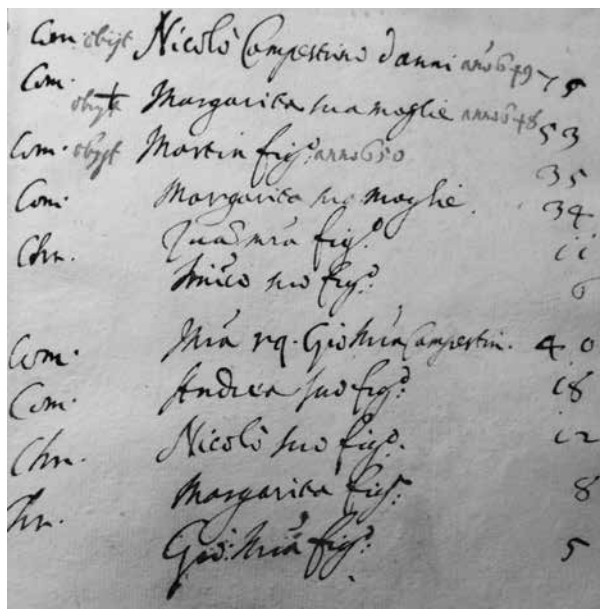 Com. obijt Nicolò Campestrino d'anni anno 649 75
Com. obijt Margarita sua moglie anno 648 53
Com. obijt Martin figº. anno 650 35
Com. Margarita sua moglie. 34
Chr. figº. 11
suo figº. 6
Com. Mîa rq. Gio Mîa Campestin. 40
Com. Andrea suo figº. 18
Chr. Nicolò suo figº. 12
Chr. Margarita figª. 8
Gio: Mîa figº. 5